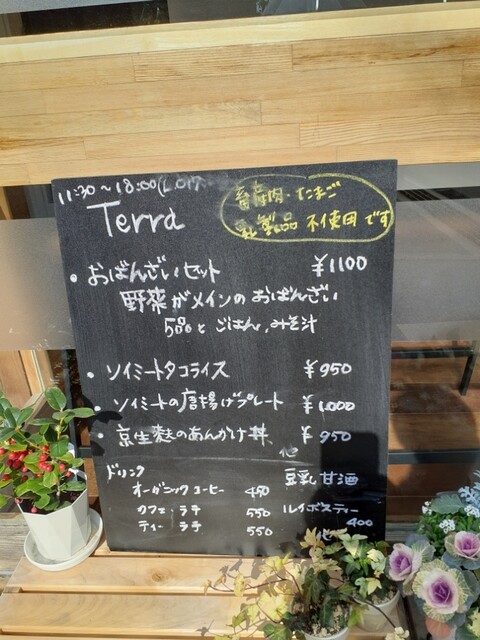 11:30~18:00(L.O17
Terra
畜産肉・たまご
乳製品 不使用です
• おばんざいセット ¥1100
野菜がメインのおばんざい
5品と ごはん,みそ汁
• ソイミートタコライス ¥950
ソイミートの唐揚げプレート ¥1,000
• 京生麩のあんかけ丼、 ¥950
他
ドリンク 豆乳甘酒
オーガニックコーヒー 450 ルイボスティー
カフェ・ラテ 550 400
ティー・ラテ 550